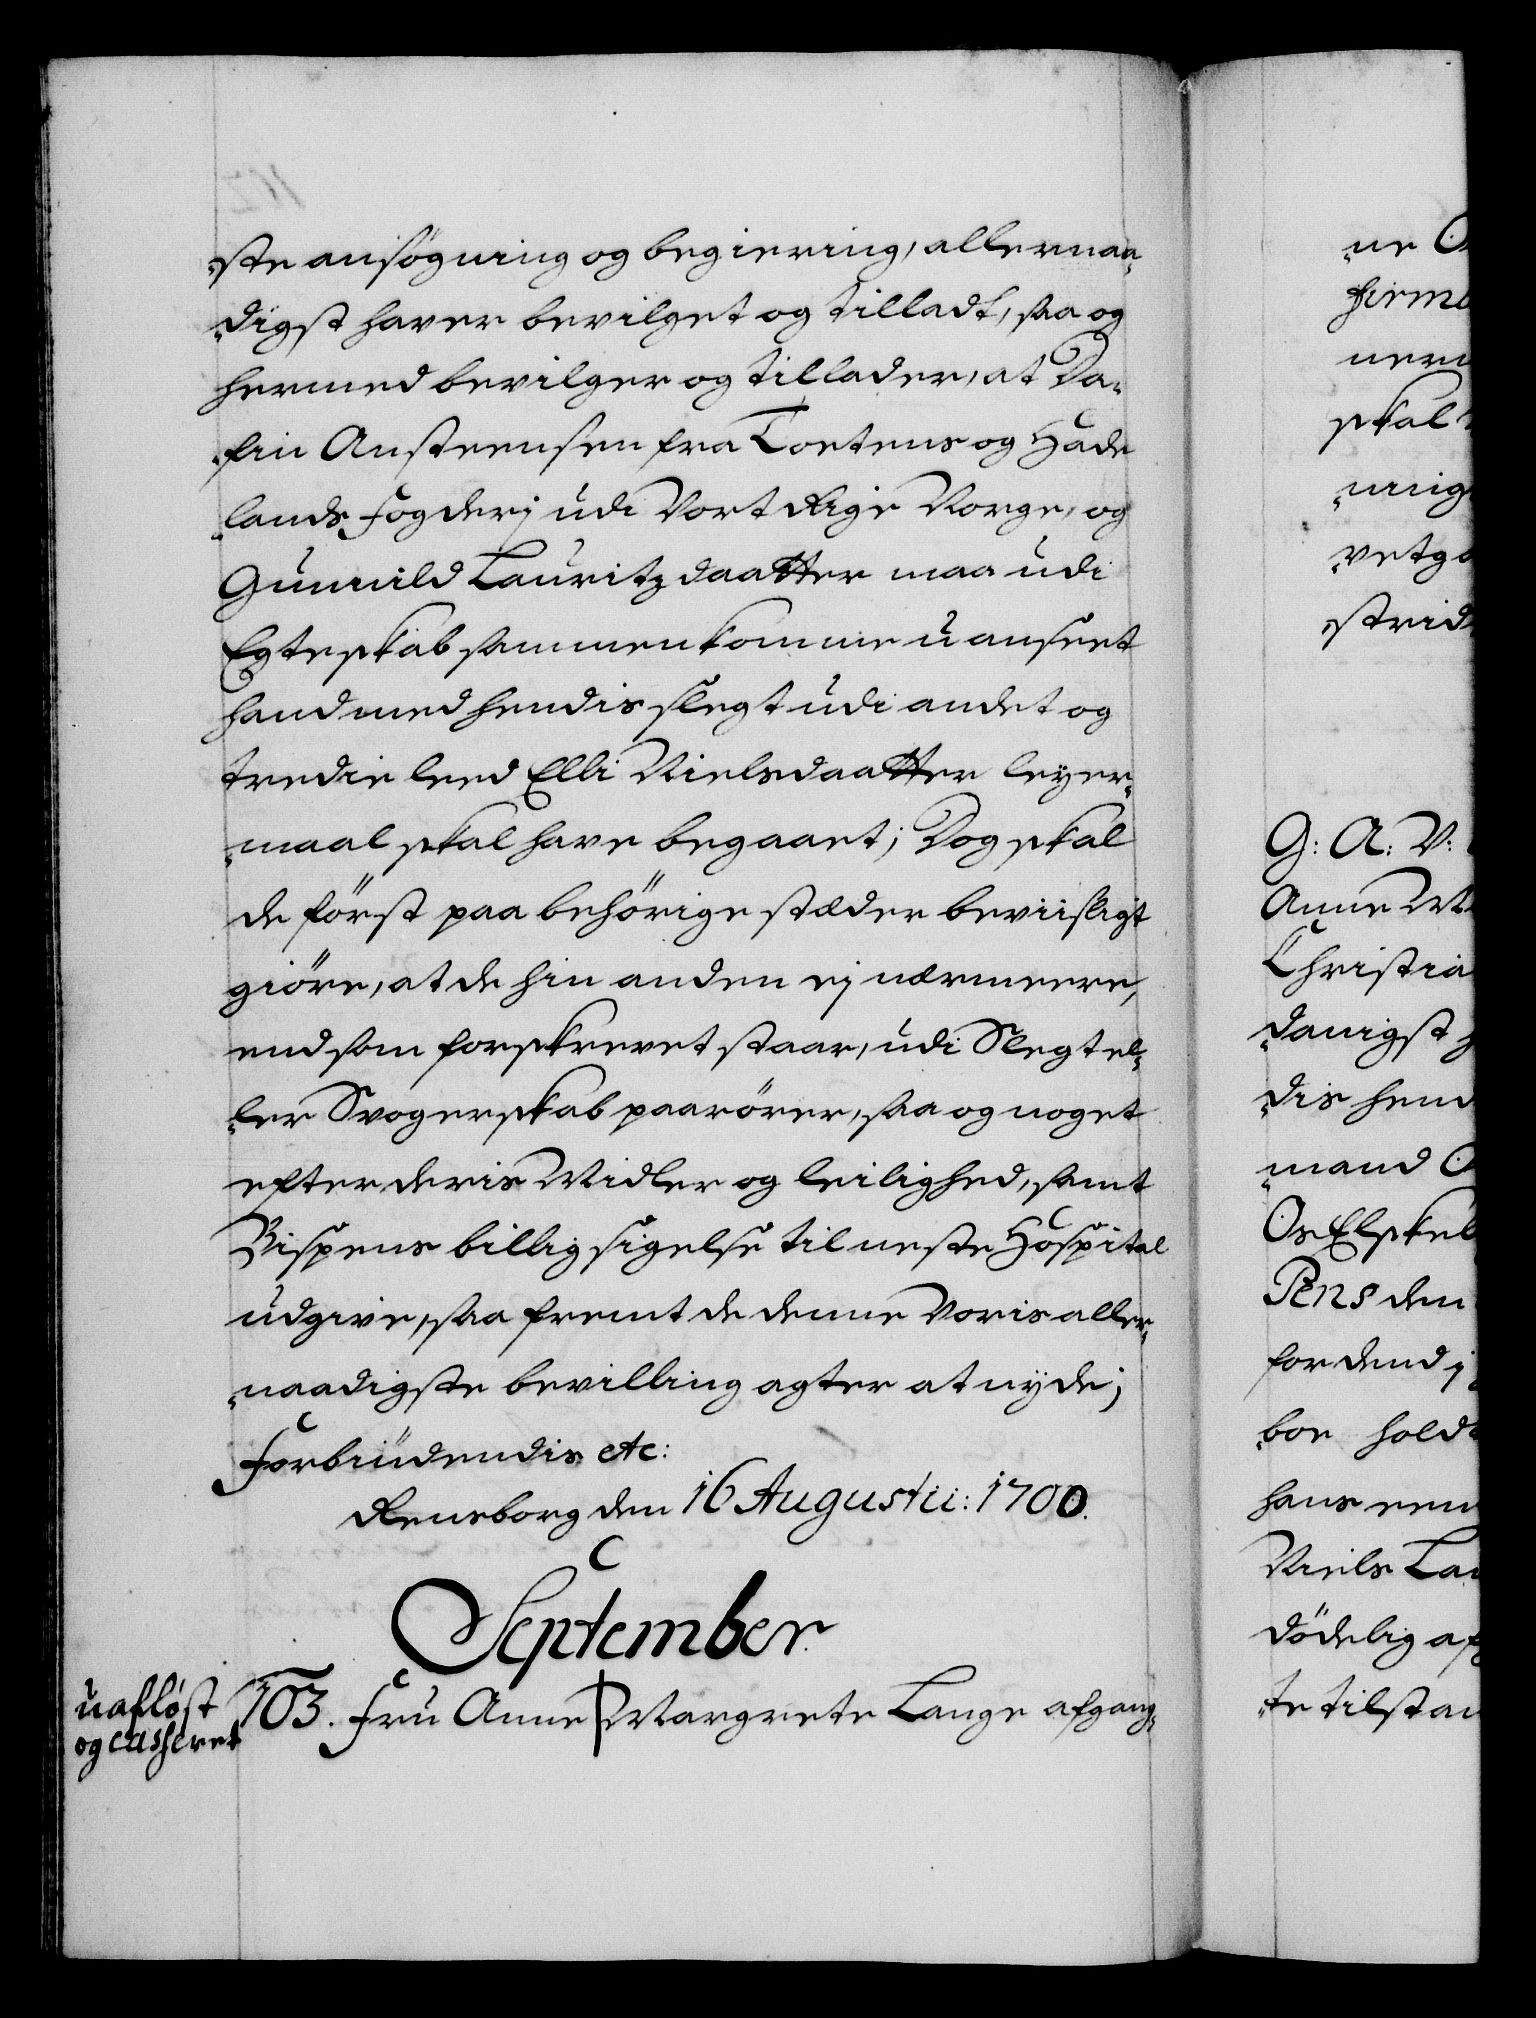 ste ansögning og begiering, allernaa-
digst haver bevilget og tilladt, saa og
hermed bevilger og tillader, at Da-
fin Austeensen fra Toetens og Hade
lands Fogderj udi Vort Rige Norge, og
Gunnild Lauritzdaatter maa udi
Egteskab sammenkomme uanseet
hand med hendis slegt udi andet og
tredie leed Elli Nielsdaatter leyer-
maal skal have begaaet; Dog skal
de först paa behörige stæder beviisligt
giöre, at de hin anden ej nærmeere,
end som forskrevet staar, udi Slegt el-
ler Svogerskab paarörer, saa og noget
efter deris Midler og leilighed, samt
Bispens billig sigelse til neste Hospital
udgive, saa fremt de denne Voris aller-
naadigste bevilling agter at nyde;
Forbiudendis etc:
Rensborg den 16 Augustii: 1700.
September.
uaflöst
og casseret
103. Fru Anne Margrete Lange afgang-
ne
skal
strid
G: A: V:
Anne M
Christia
danigst
dis hend
mand
Os Elskel
Jens den
for dend
boe hold
hans
Niels Lan
dödelig af
te tilstan